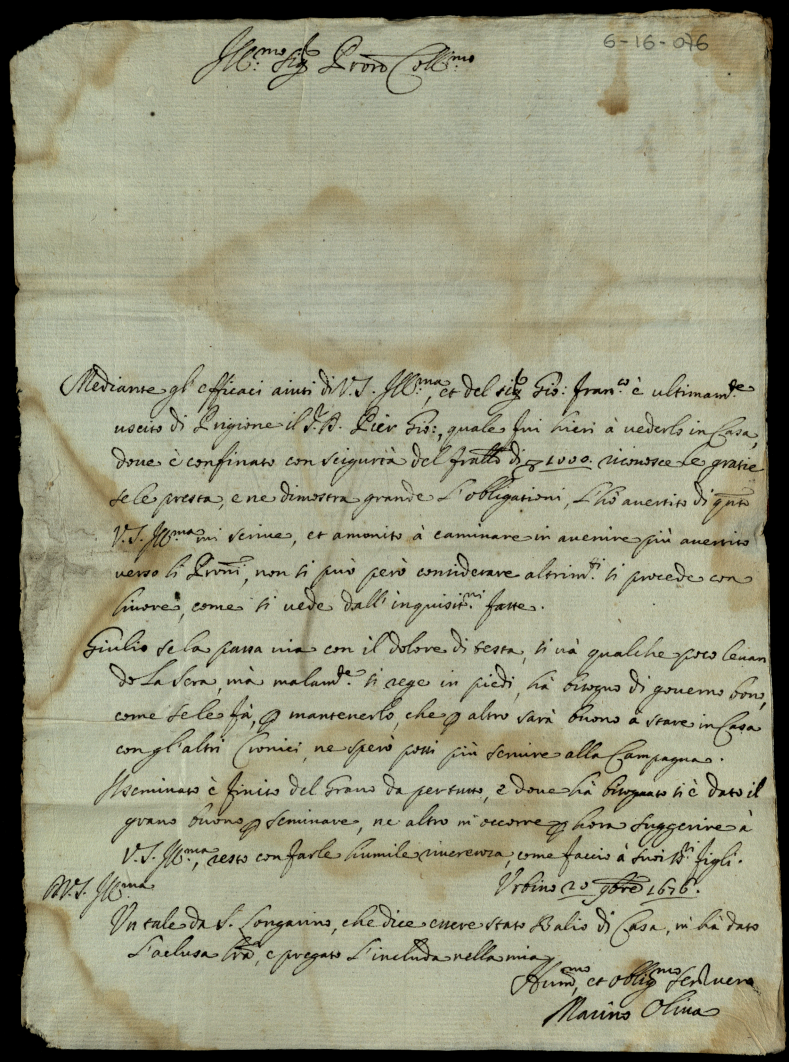 6-16-076
Ill:mo Sig.r P.rone Coll:mo
Mediante gl'efficaci aiuti di V.S. Ill:ma, et del Sig.r Gio: Fran.co è ultimam.te
uscito di Prigione il Pier Gio:, quale fui hieri à vederlo in Casa,
dove è confinato con sigurtà del fratello di 1000: riconosce le gratie
se le presta, e ne dimostra grande l'obligationi, l'hò avertito di q.nto
V.S. Ill:ma mi scrive, et amonito à caminare in avenire più avertito
verso li P.roni, non si può però considerare altrim.ti si procede con
livore, come si vede dall'inquisit.ni fatte.
Giulio se la passa via con il dolore di testa, si và qualche poco levan
do la sera, mà malam.te si rege in piedi, hà bisogno di governo bono,
come se le fà, p mantenerlo, che p altro sarà buono à stare in Casa
con gl'altri Cronici, ne spero possi più servire alla Campagna.
Il seminato è finito del Grano da per tutto, e dove hà bisognato si è dato il
grano buono p seminare, ne altro m'occorre p hora suggerire à
V.S. Ill:ma, resto con farle humile riverenza, come faccio à suoi SS.ri figli.
Urbino 20 9bre 1676.
D V.S. Ill:ma
Un tale da S. Longarino, che dice essere stato Balio di Casa, m'hà dato
l'aclusa l.ra, e pregato l'includa nella mia
Hum.mo, et oblig.mo Ser. vero
Marino Oliva